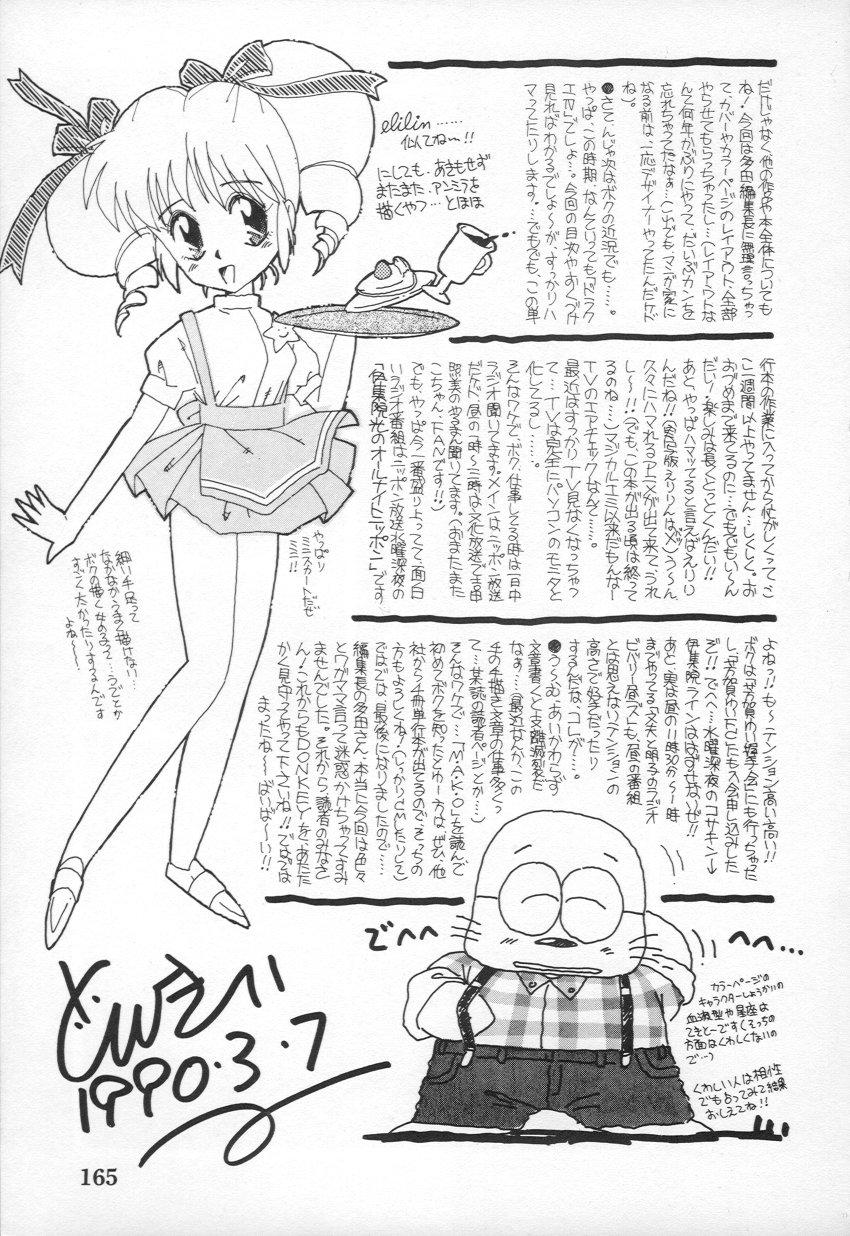 だけじゃなく他の作品や本全体についても
ね!今回は多田編集長に無理言っちゃっ
て、カバーやカラーページのレイアウト全部
やらせてもらっちゃったし…(レイアウトな
んて何年かぶりにやって、だいぶカンを
忘れちゃってたなぁ…(でもマンガ家に
なる前は、一応デザイナーやってたんだケド
ね)。
●さてんじゃ次はボクの近況でも……。
やっぱ、この時期、なんといっても「ドラク
エIV」でしょ…。今回の目次や、おくづけ
見ればわかるでしょーが、すっかりハ
マってたりします。…でもでも、この単
行本の作業に入ってから忙がしくってこ
こ二週間以上やってません…しくしく。お
おづめまで来てるのに…でもでもい〜ん
だい!楽しみは長くとっとくんだい!!
あと、やっぱハマッてると言えばえりり
んだね!!
久々にハマれるアニメが出て来て、うれ
し〜!!(でも、この本が出る頃は、終って
るのね…)マジカルエミ以来だもんなー
TVのエアチェックなんて……。
最近はすっかりTV見なくなっちゃっ
て…TVは完全にパソコンのモニタと
化してるし……。
そんなワケで、ボク、仕事してる時は一日中
ラジオ聞いてます。メインはニッポン放送
だけど、昼の1時〜三時は文化放送で吉田
照美のやるまん聞いてます。(おまたまた
こちゃん、FANです!!)
でも、やっぱ今一番盛り上ってて、面白
いラジオ番組は、ニッポン放送水曜深夜の
「伊集院光のオールナイトニッポン」です
よねっ!!も〜テンション高い高い!!
ボクは「芳賀ゆい握手会」にも行っちゃった
し、「芳賀ゆいFC」にも入会申し込みした
ぞ!!でへへ…水曜深夜のコサキン→
伊集院ラインははずせないぜ!!
あと、実な昼の11時30分〜1時
までやってる「文夫と明子のラジオ
ビバリー昼ズ」も、昼の番組
とは思えないテンションの
高さで好きだったり
するんだな、コレが…。
●う〜む、あいかわらず
文章書くと支離滅裂だ
なぁ…。(最近なんか、この
手の手描き文章の仕事多くっ
て…某誌の読者ページとか…)
そんなワケで…「MAKO」を読んで
初めてボクを知ったとゆー方は、ぜひ、他
社から4冊単行本が出てるのでそっちの
方もよろしくね!(しっかりCMしたりして)
ではでは、最後になりましたので……
編集長の多田さん、本当に今回は色々
とワガママ言って迷惑かけちゃってすみ
ませんでした。それから、読者のみなさ
ん!これからもDONKEYを、あたた
かく見守ってやって下さいね!!ではでは
まったね〜ばいばーい!!
elilin……
似てね〜!!
にしても、あきもせず
またまた、アンミラを
描くやつ…とほほ
やっぱり
ミニスカートだぜ
ミミミ!!
細い手足って
なかなかうまく描けない…
ボクの描く女のコって…うでとか
すごく太かったりするんです
よね〜〜。
でへへ
へへ…
カラーページの
キャラクターしょうかいの
血液型や星座は
てきとーです(そっちの
方面はくわしくないの
で…)
くわしい人は相性
でも占ってみて結果
おしえてね!!
1990・3・7
165